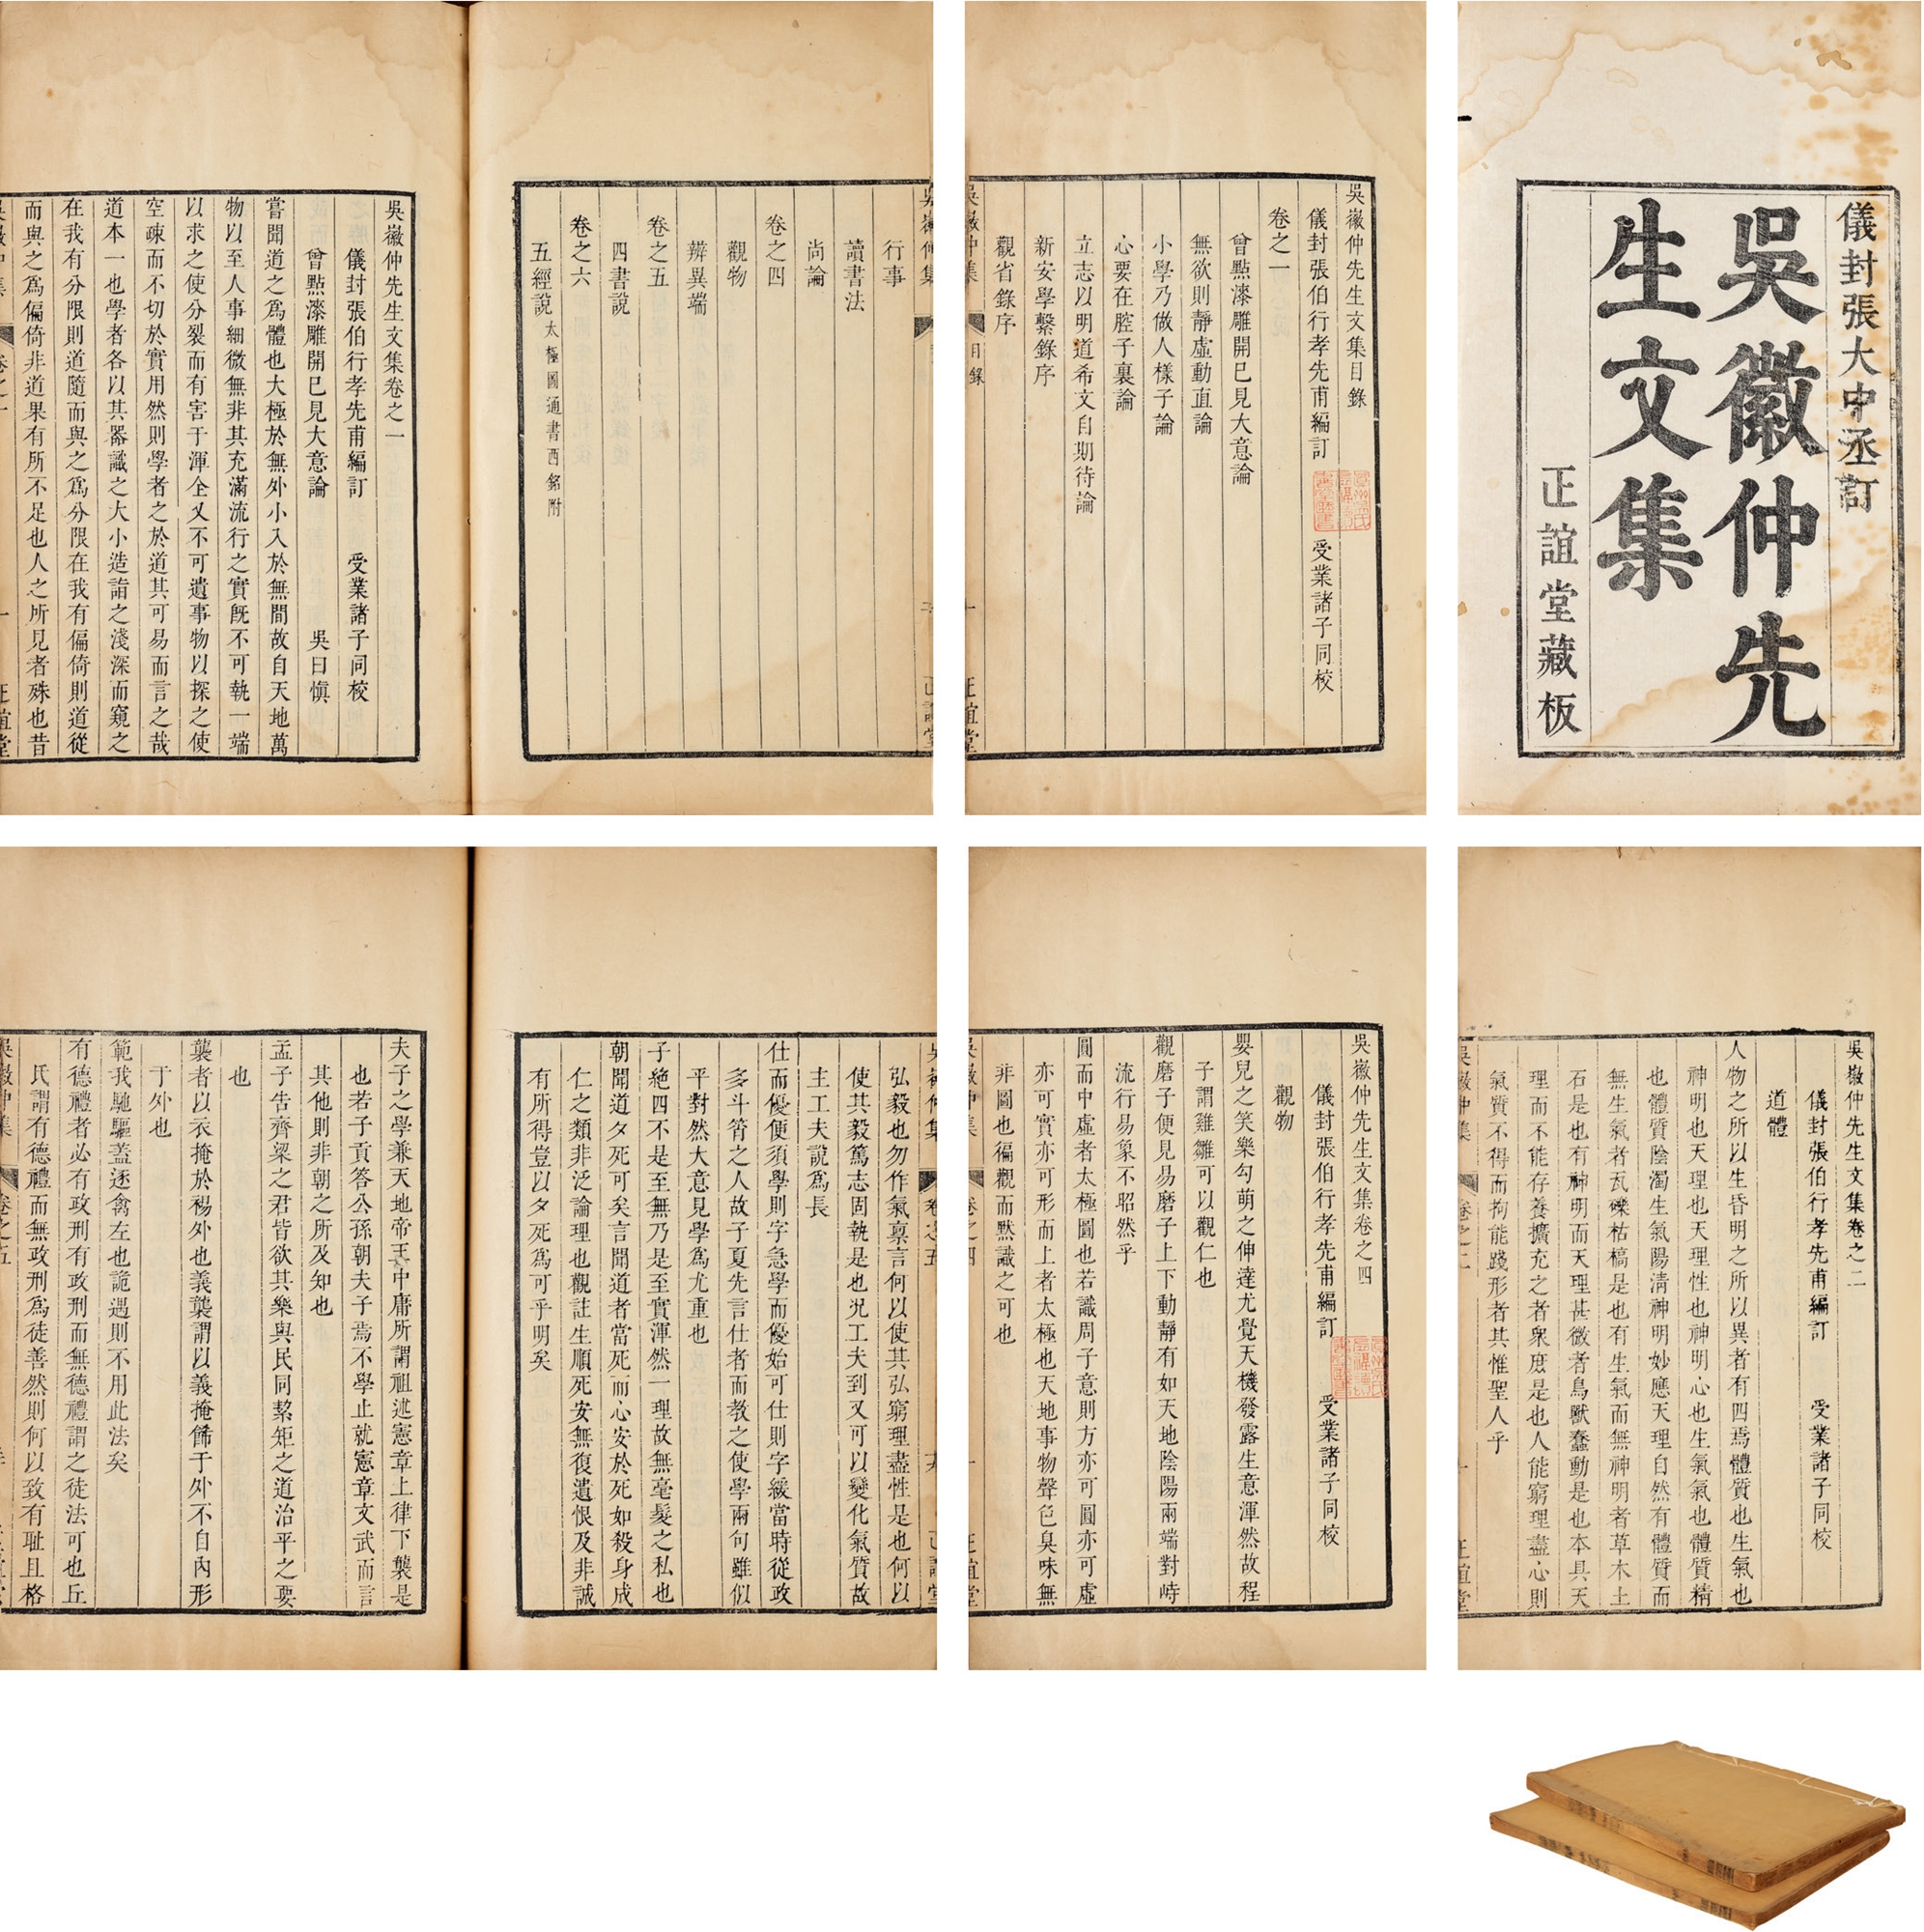 儀封張大中丞訂
吳徽仲先
生文集
正誼堂藏板
吳徽仲先生文集目錄
儀封張伯行孝先甫編訂 受業諸子同校
卷之一
曾點漆雕開已見大意論
無欲則靜虛動直論
小學乃做人樣子論
心要在腔子裏論
立志以明道希文自期待論
新安學繫錄序
觀省錄序
吳徽仲集 目錄 一 正誼堂
吳徽仲集 正誼堂
行事
讀書法
尚論
卷之四
觀物
辨異端
卷之五
四書說
卷之六
五經說 太極圖通書西銘附
吳徽仲先生文集卷之一
儀封張伯行孝先甫編訂 受業諸子同校
曾點漆雕開已見大意論 吳曰慎
嘗聞道之爲體也大極於無外小入於無間故自天地萬
物以至人事細微無非其充滿流行之實既不可執一端
以求之使分裂而有害于渾全又不可遺事物以探之使
空疎而不切於實用然則學者之於道其可易而言之哉
道本一也學者各以其器識之大小造詣之淺深而窺之
在我有分限則道隨而與之爲分限在我有偏倚則道從
而與之爲偏倚非道果有所不足也人之所見者殊也昔
吳徽仲集 卷之一 一 正誼堂
吳徽仲先生文集卷之二
儀封張伯行孝先甫編訂 受業諸子同校
道體
人物之所以生昏明之所以異者有四焉體質也生氣也
神明也天理也天理性也神明心也生氣氣也體質精
也體質陰濁生氣陽清神明妙應天理自然有體質而
無生氣者瓦礫枯槁是也有生氣而無神明者草木土
石是也有神明而天理甚微者鳥獸蠢動是也本具天
理而不能存養擴充之者衆庶是也人能窮理盡心則
氣質不得而拘能踐形者其惟聖人乎
吳徽仲集 卷之二 一 正誼堂
吳徽仲先生文集卷之四
儀封張伯行孝先甫編訂 受業諸子同校
觀物
嬰兒之笑樂勾萌之伸達尤覺天機發露生意渾然故程
子謂雞雛可以觀仁也
觀磨子便見易磨子上下動靜有如天地陰陽兩端對峙
流行易象不昭然乎
圓而中虛者太極圖也若識周子意則方亦可圓亦可虛
亦可實亦可形而上者太極也天地事物聲色臭味無
非圖也徧觀而默識之可也
吳徽仲集 卷之四 一 正誼堂
吳徽仲集 卷之五 正誼堂
弘毅也勿作氣稟言何以使其弘窮理盡性是也何以
使其毅篤志固執是也況工夫到又可以變化氣質故
主工夫說爲長
仕而優便須學則字急學而優始可仕則字緩當時從政
多斗筲之人故子夏先言仕者而教之使學兩句雖似
平對然大意見學爲尤重也
子絶四不是至無乃是至實渾然一理故無毫髮之私也
朝聞道夕死可矣言聞道者當死而心安於死如殺身成
仁之類非泛論理也觀註生順死安無復遺恨及非誠
有所得豈以夕死爲可乎明矣
夫子之學兼天地帝王中庸所謂祖述憲章上律下襲是
也若子貢答公孫朝夫子焉不學止就憲章文武而言
其他則非朝之所及知也
孟子告齊梁之君皆欲其樂與民同絜矩之道治平之要
也
襲者以衣掩於裼外也義襲謂以義掩飾于外不自內形
于外也
範我馳驅蓋逐禽左也詭遇則不用此法矣
有德禮者必有政刑有政刑而無德禮謂之徒法可也丘
氏謂有德禮而無政刑爲徒善然則何以致有耻且格
吳徽仲集 卷之五